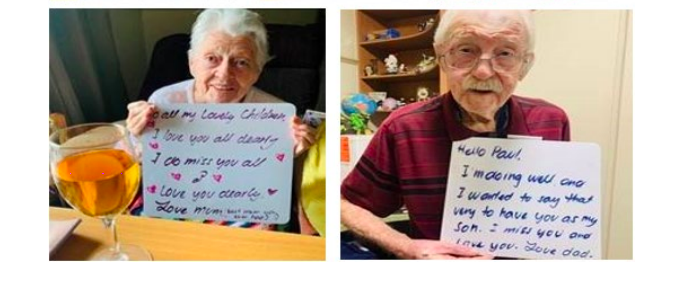 To all my Lovely Children,
I love you all dearly
I do miss you all
Love you dearly.
Love mum
Hello Paul,
I'm doing well, and
I wanted to say that
very to have you as my
son. I miss you and
love you. Love dad.